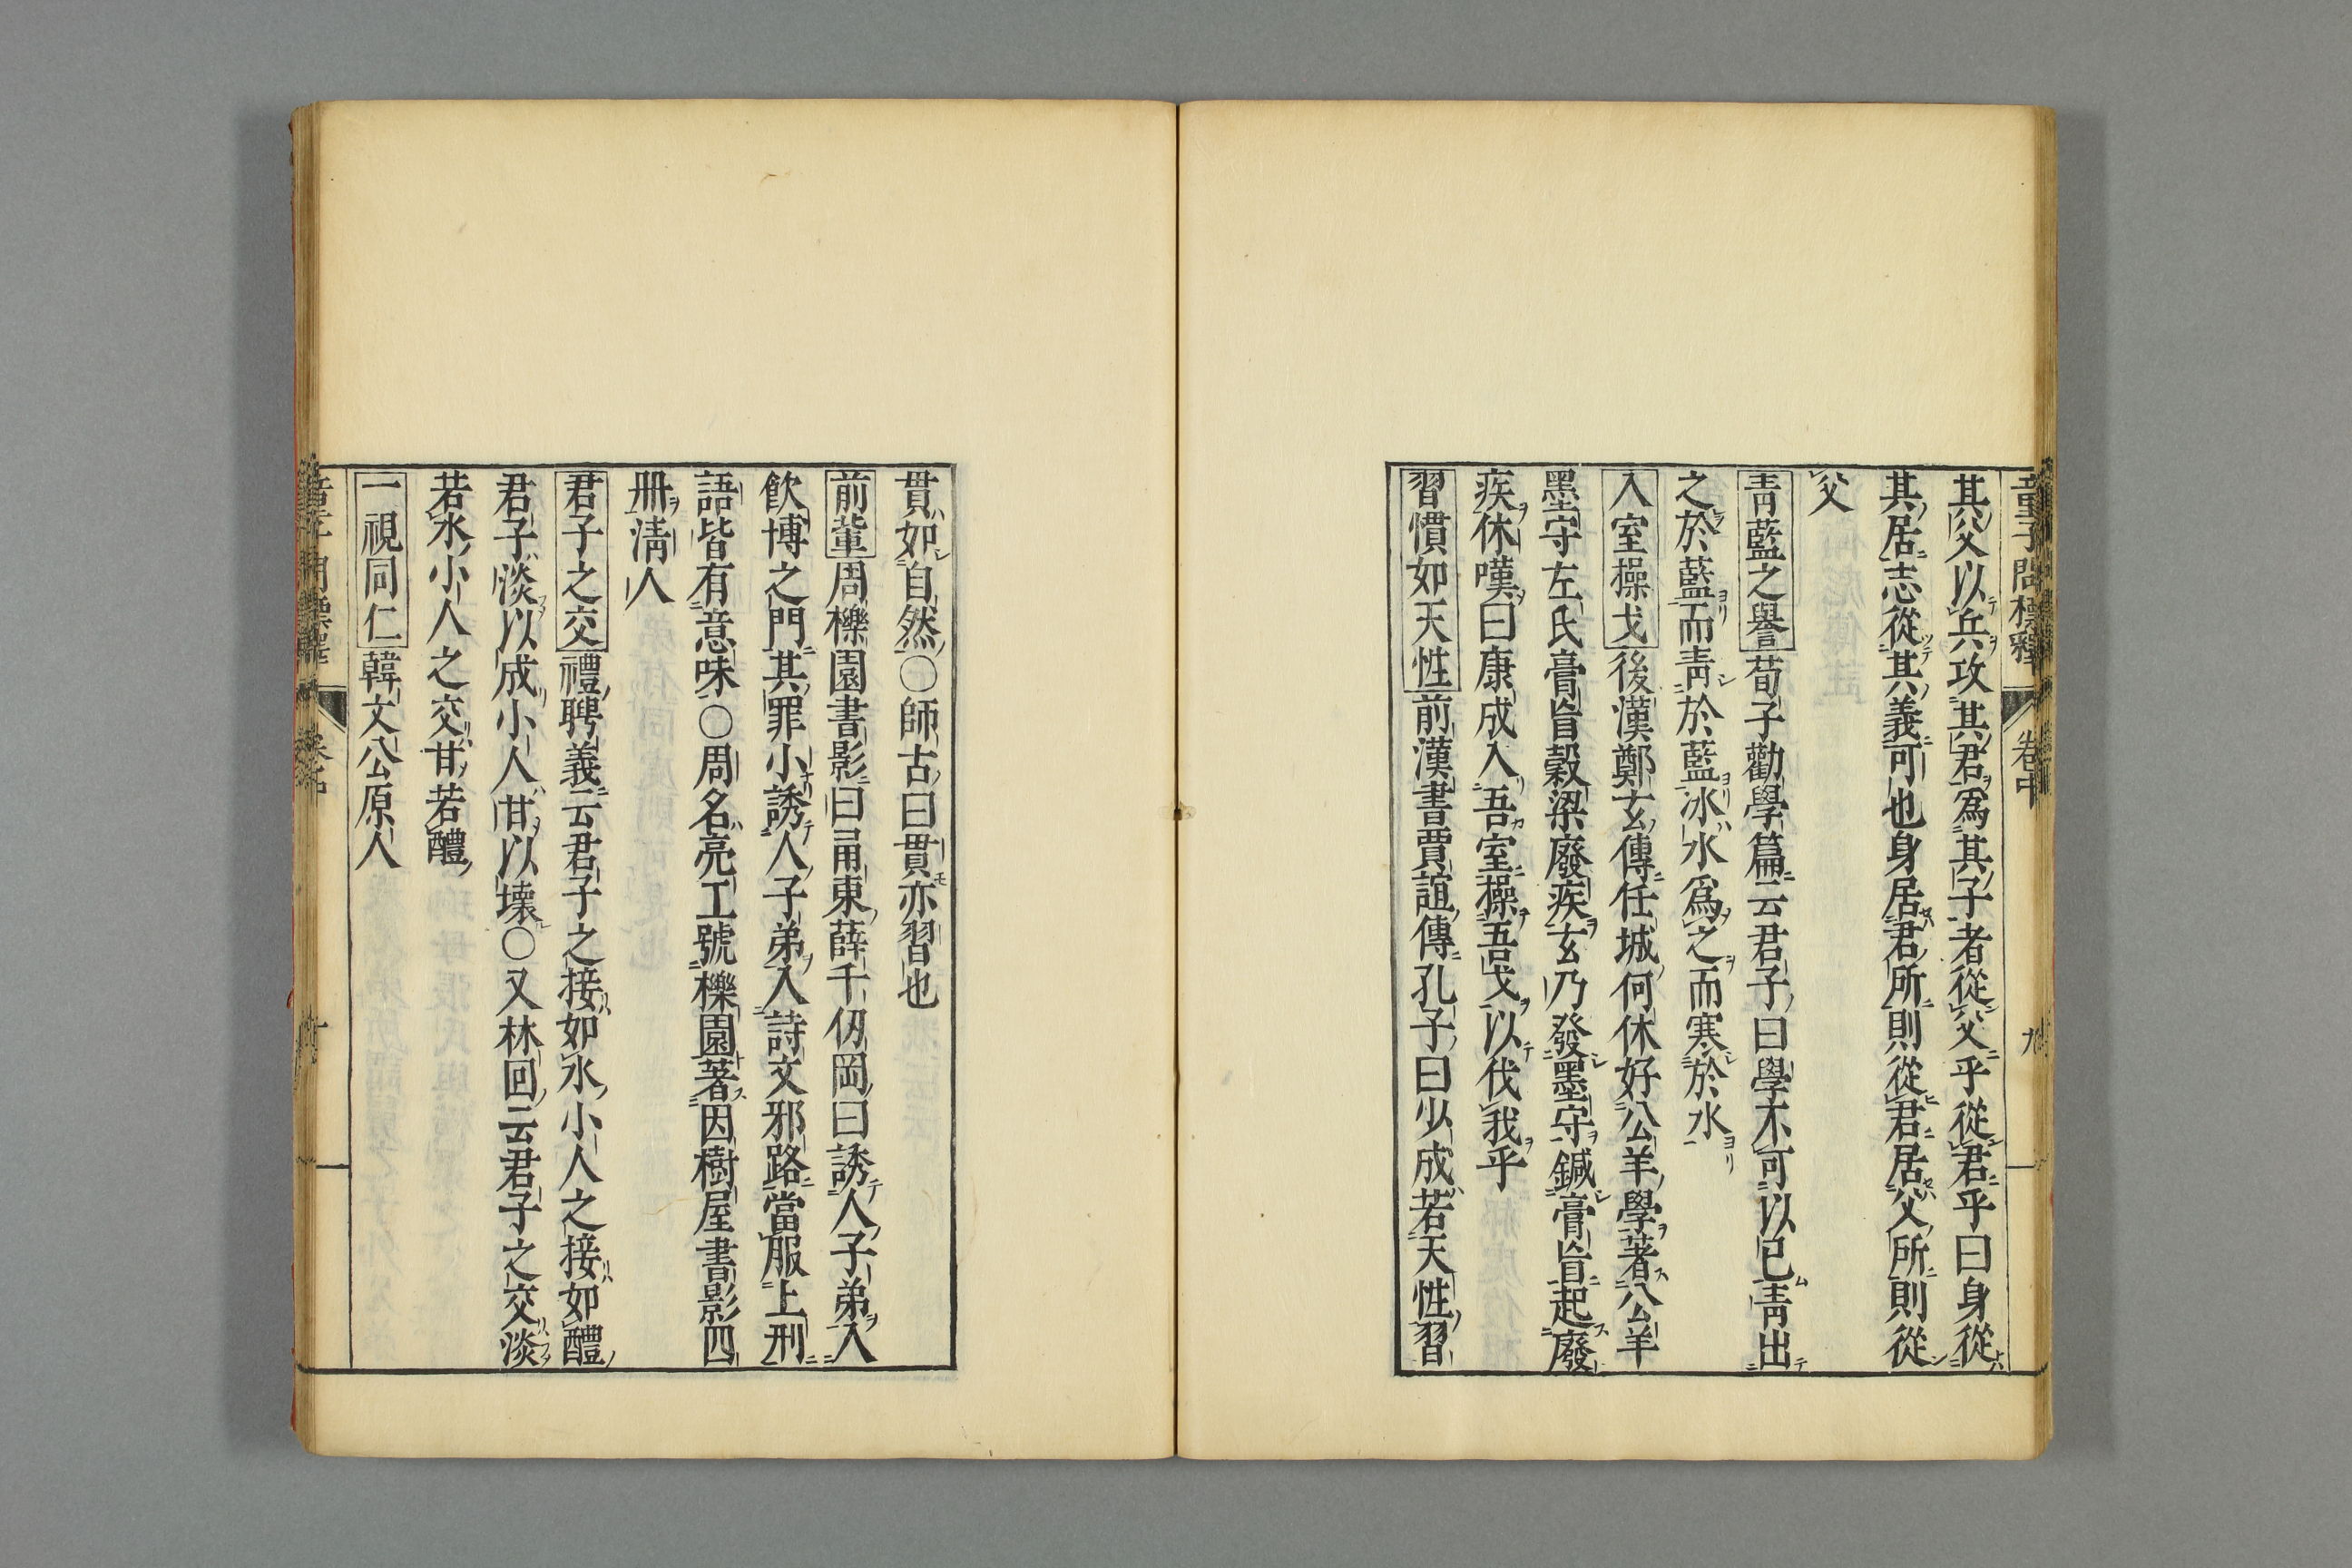 童子問標釋 卷中 九
其父以兵攻其君爲其子者從父乎從君乎曰身從
其居志從其義可也身居君所則從君居父所則從
父
青藍之譽荀子勸學篇云君子曰學不可以已青出
之於藍而青於藍冰水爲之而寒於水
入室操戈後漢鄭玄傳任城何休好公羊學著公羊
墨守左氏膏肓穀梁廢疾玄乃發墨守鍼膏肓起廢
疾休嘆曰康成入吾室操吾戈以伐我乎
習慣如天性前漢書賈誼傳孔子曰少成若天性習
貫如自然○師古曰貫亦習也
前輩周櫟園書影曰甬東薛千仭岡曰誘人子弟入
飮博之門其罪小誘人子弟入詩文邪路當服上刑
語皆有意味○周名亮工號櫟園著因樹屋書影四
册淸人
君子之交禮聘義云君子之接如水小人之接如醴
君子淡以成小人甘以壞○又林回云君子之交淡
若水小人之交甘若醴
一視同仁韓文公原人